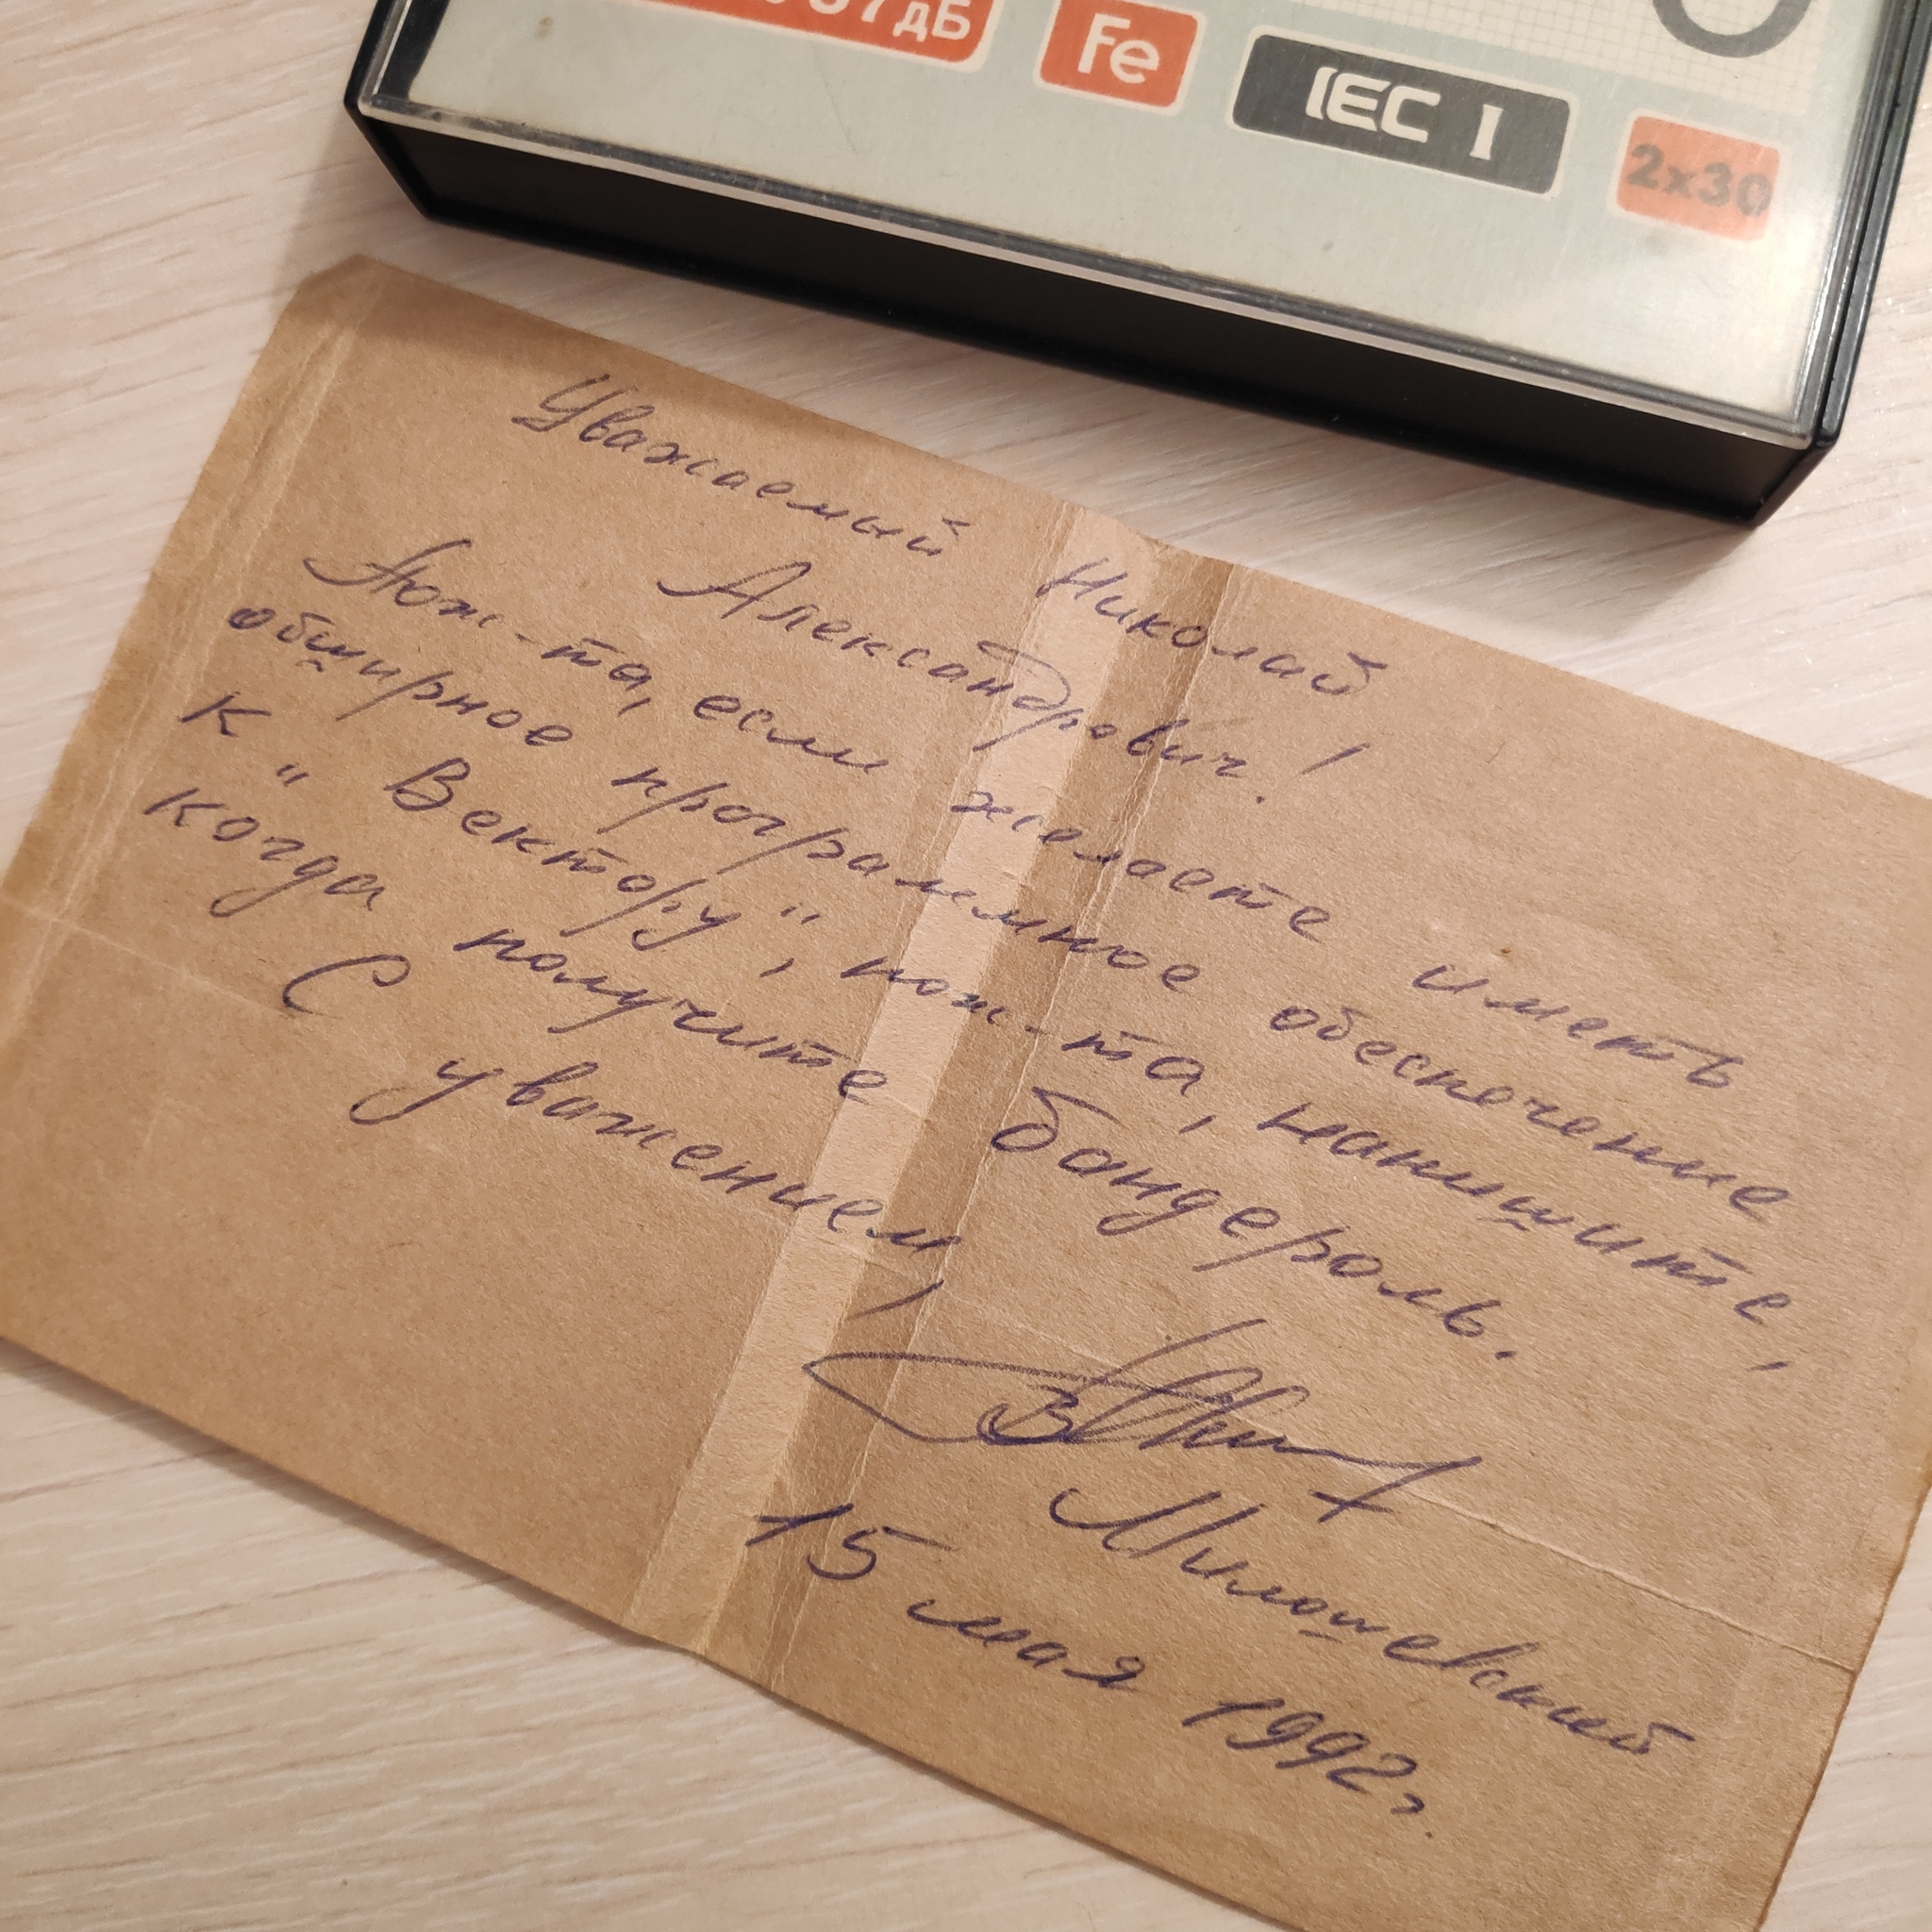 Fe
IEC I
2x30
Уважаемый Николай
Александрович!
Пож-та, если желаете иметь
обширное программное обеспечение
к "Вектору", пож-та, напишите,
когда получите бандероль.
С уважением,
Милошевский
15 мая 1992г.